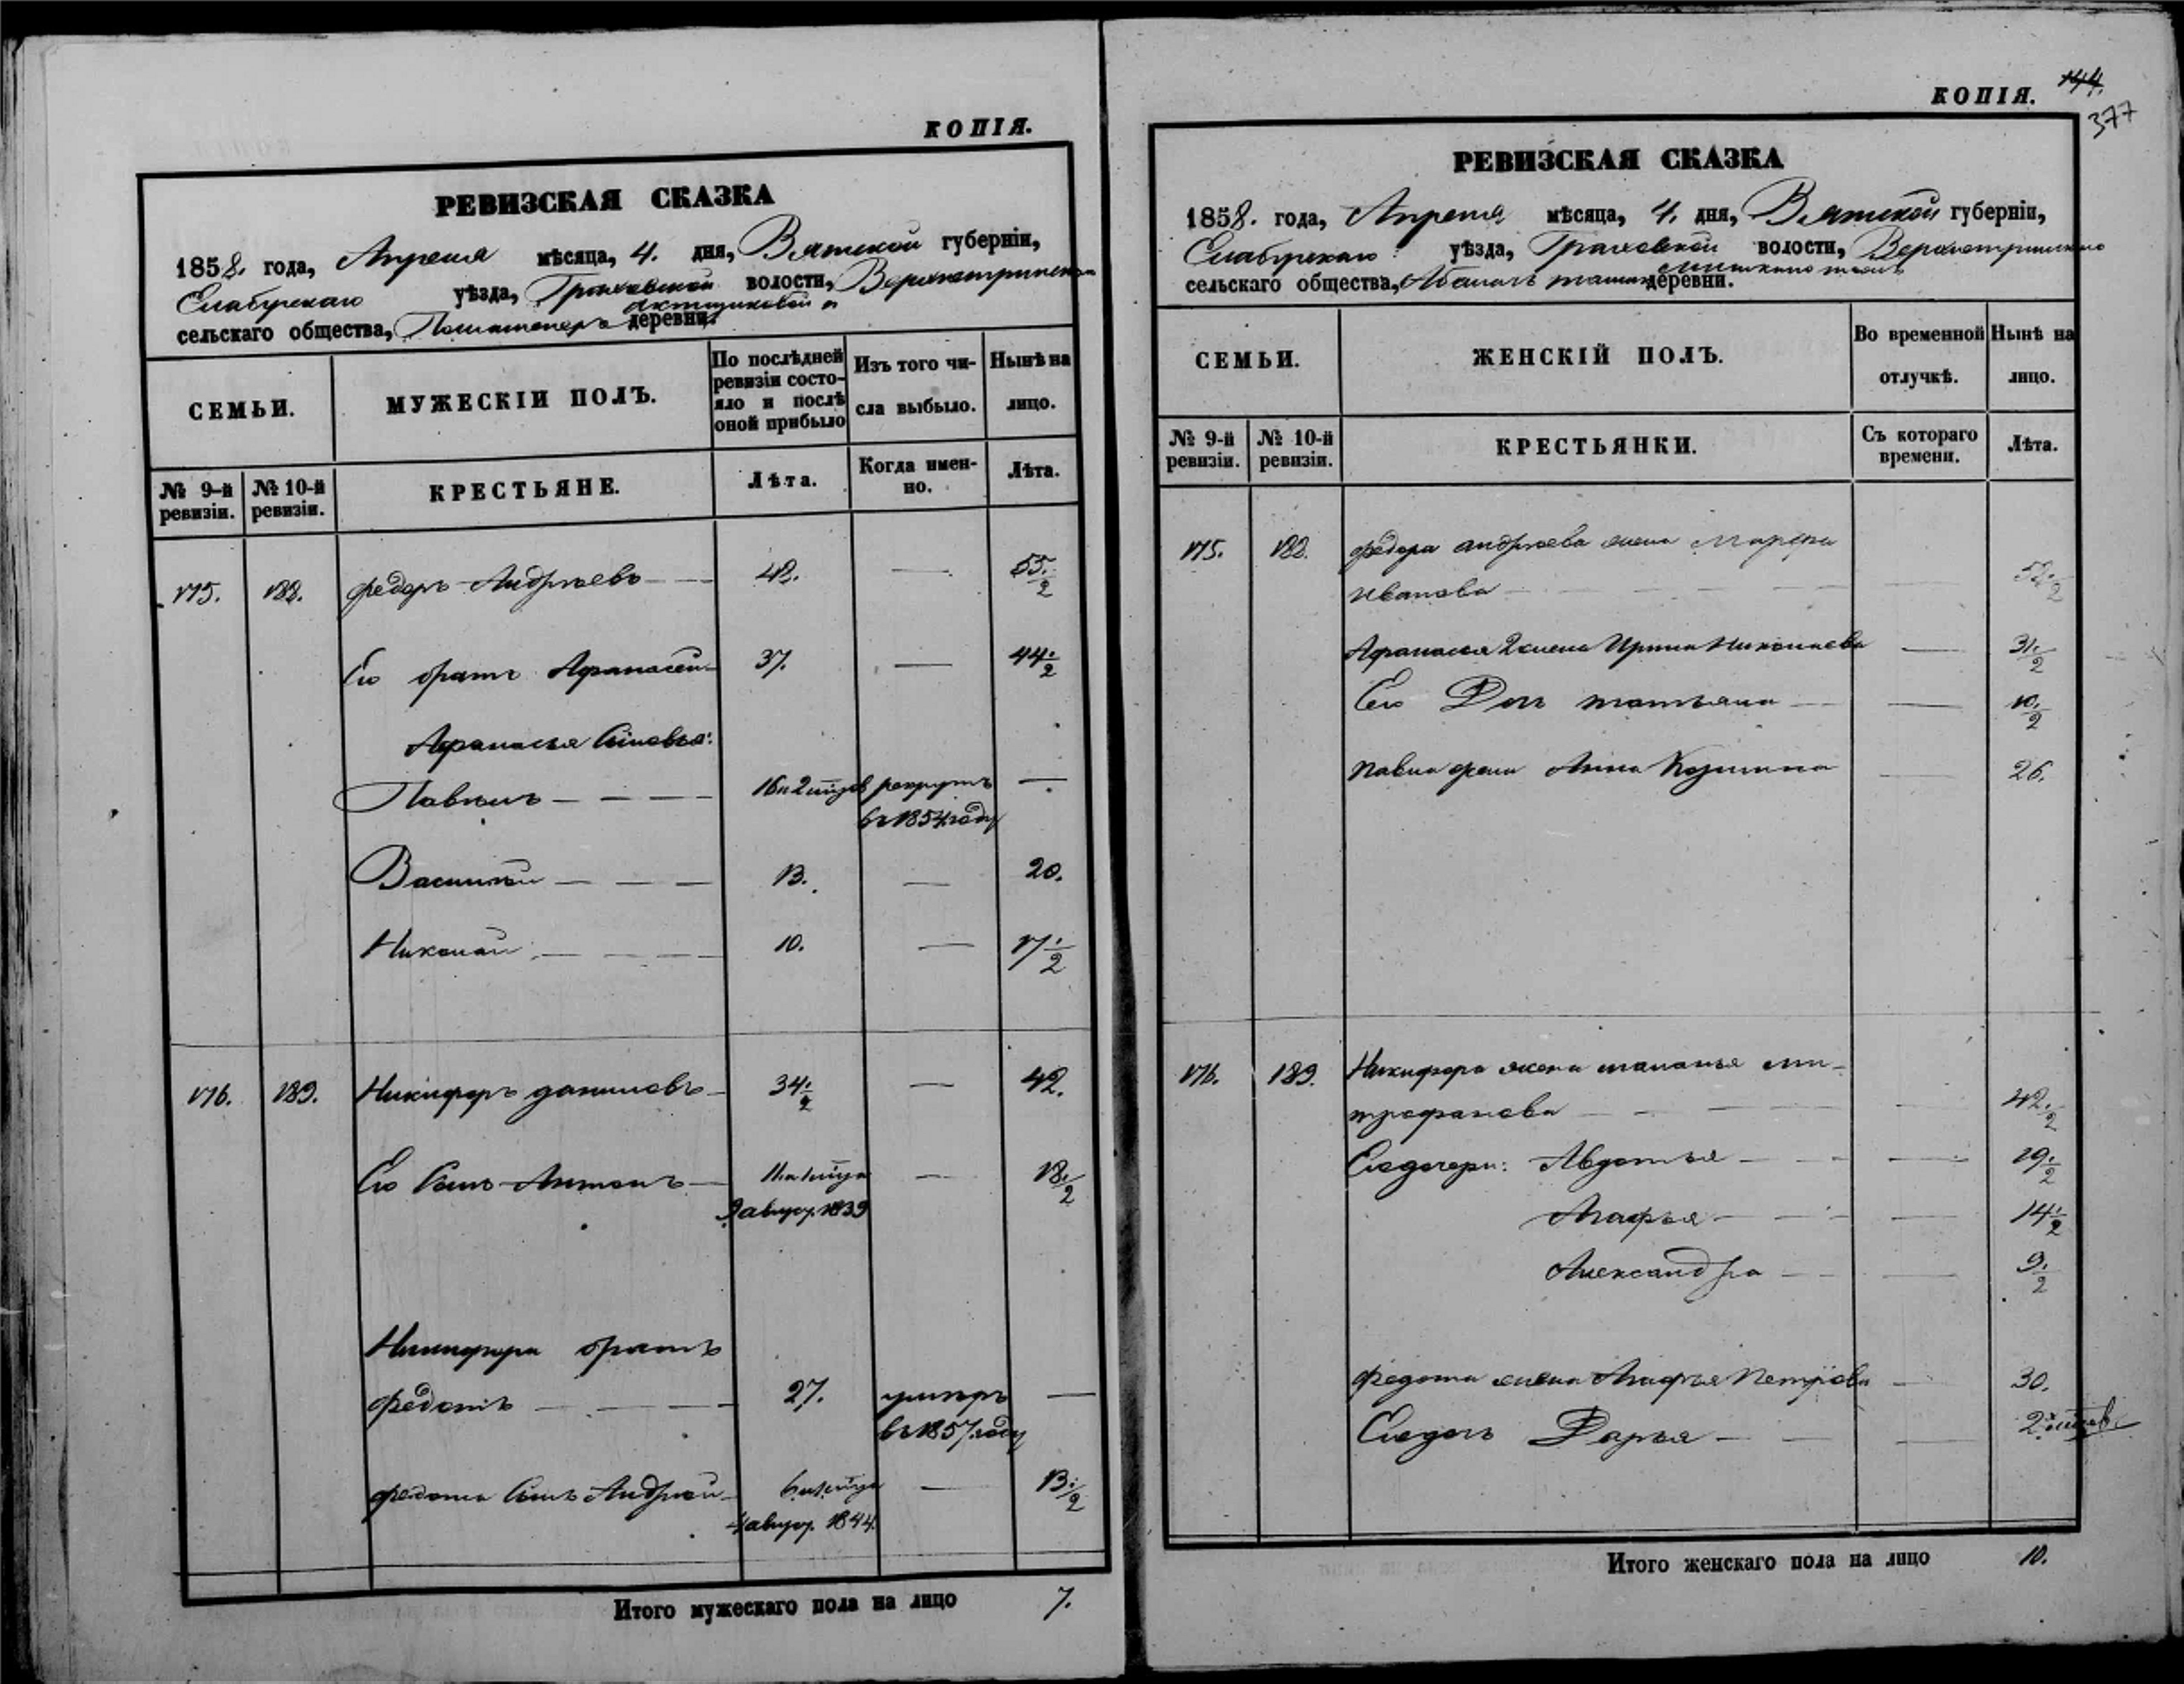 КОПІЯ.
РЕВИЗСКАЯ СКАЗКА
1858. года, Апреля мѣсяца, 4. дня, Вятской губерніи,
Елабужскаго уѣзда, Граховской волости,
сельскаго общества, деревни.
СЕМЬИ.
МУЖЕСКІЙ ПОЛЪ.
По послѣдней ревизіи состояло и послѣ оной прибыло
Изъ того числа выбыло.
Нынѣ на лицо.
№ 9-й ревизіи.
№ 10-й ревизіи.
КРЕСТЬЯНЕ.
Лѣта.
Когда именно.
Лѣта.
175. 188. Федоръ Андреевъ 48. 55.½
Его братъ Афанасей 37. 44.½
Афанасья Сыновья:
Павелъ 16 и 2 рекрутъ
въ 1854 году
Василий 13. 20.
Николай 10. 17.½
176. 189. Никифоръ даниловъ 34.½ 42.
Его Сынъ Антонъ 18.½
9 авгус. 1839
Никифора братъ
Федотъ 27. умеръ
въ 1857 году
Федота Сынъ Андрей 13.½
4 авгус. 1844.
Итого мужескаго пола на лицо 7.
КОПІЯ. 144.
377
РЕВИЗСКАЯ СКАЗКА
1858. года, Апреля мѣсяца, 4. дня, Вятской губерніи,
Елабужскаго уѣзда, Граховской волости,
сельскаго общества, деревни.
СЕМЬИ.
ЖЕНСКІЙ ПОЛЪ.
Во временной отлучкѣ.
Нынѣ на лицо.
№ 9-й ревизіи.
№ 10-й ревизіи.
КРЕСТЬЯНКИ.
Съ котораго времени.
Лѣта.
175. 188. Федора андреева жена Марфа
Иванова
Афанасья 2 жена Ирина Николаева 31.½
Его Дочь татьяна 10.½
Павла жена Анна 26.
176. 189. Никифора жена маланья ми-
трофанова 42.½
Его дочери: Авдотья 19.½
Агафья 14.½
Александра 9.½
Федота жена Агафья Петрова 30.
Его дочь Дарья
Итого женскаго пола на лицо 10.